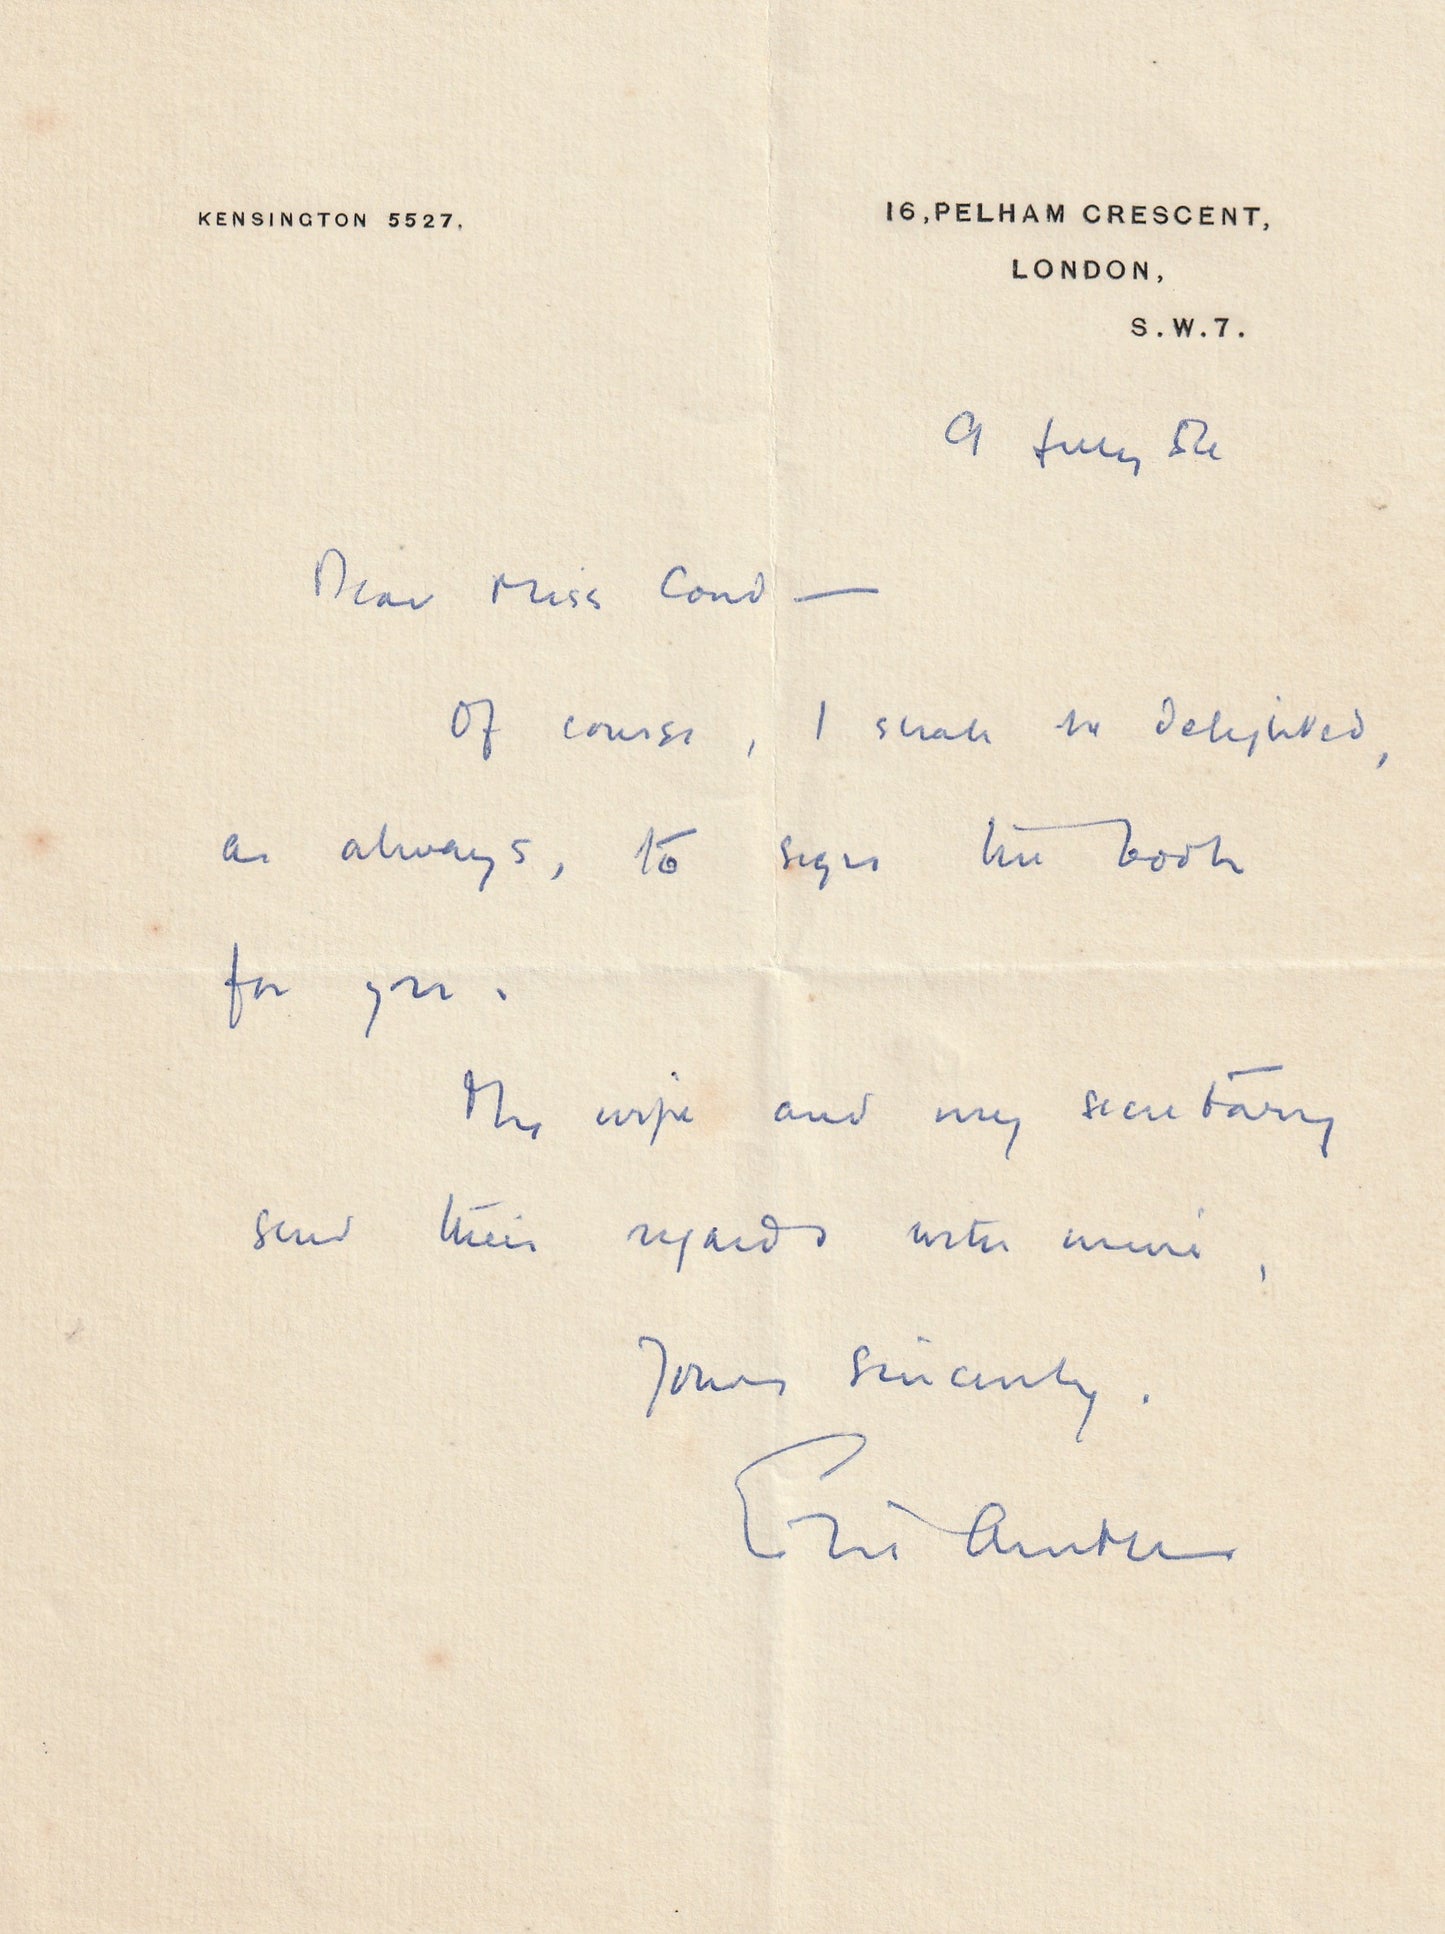 KENSINGTON 5527.
16, PELHAM CRESCENT,
LONDON,
S.W.7.
9 July 52
Dear Miss Cond —
Of course, I shall be delighted,
as always, to sign the book
for you.
My wife and my secretary
send their regards with mine,
Yours sincerely.
Eric Ambler